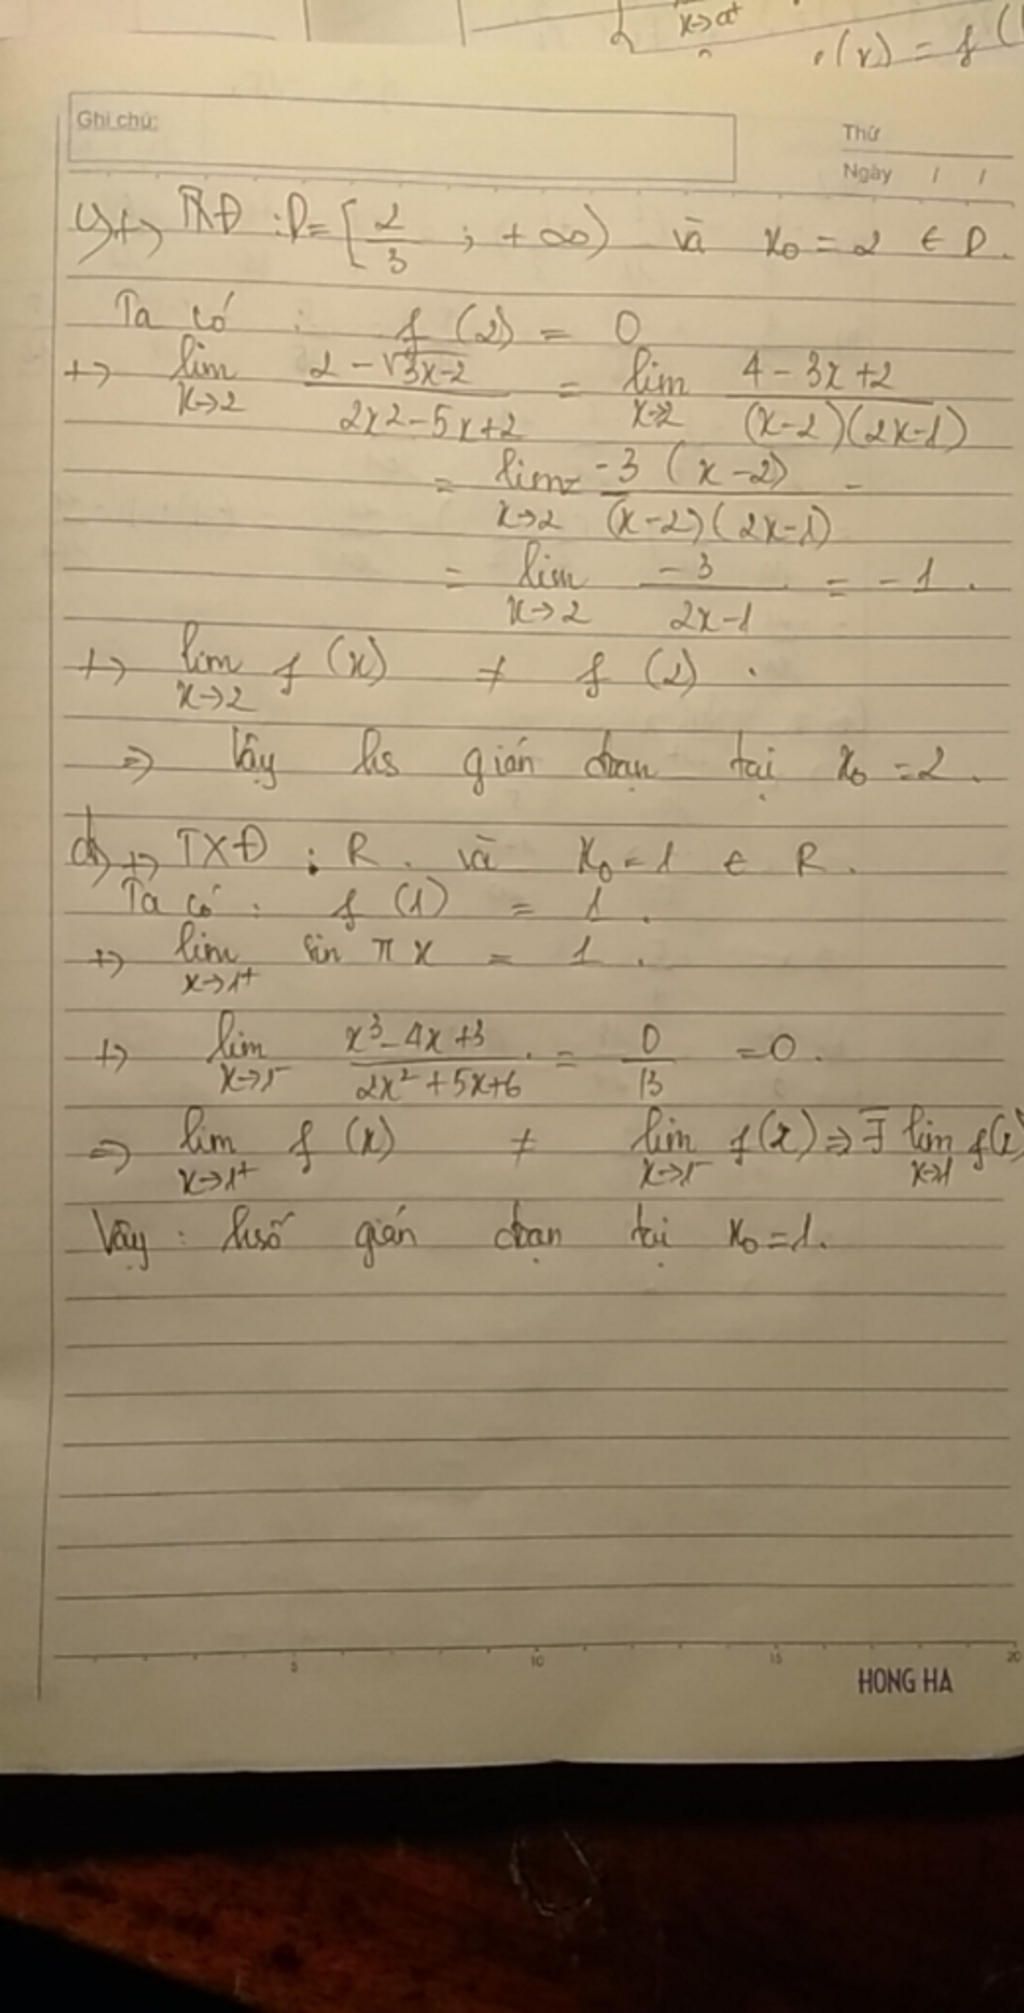 x→a⁺
(x) = f (
Ghi chú:
Thứ
Ngày / /
c) +) TXĐ : D = [2/3 ; +∞) và x₀ = 2 ∈ D.
Ta có : f (2) = 0
+) lim x→2 (2 - √3x-2)/(2x2-5x+2) = lim x→2 (4 - 3x + 2)/((x-2)(2x-1))
= lim x→2 -3 (x-2)/((x-2)(2x-1))
= lim x→2 -3/(2x-1) = -1.
+) lim x→2 f (x) ≠ f (2).
=> Vậy hs gián đoạn tại x₀ = 2.
d) +) TXĐ : R. và x₀ = 1 ∈ R.
Ta có : f (1) = 1.
+) lim x→1⁺ sin π x = 1.
+) lim x→1⁻ (x³-4x+3)/(2x²+5x+6) = 0/13 = 0.
=> lim x→1⁺ f (x) ≠ lim x→1⁻ f(x) => ∄ lim x→1 f(x)
Vậy : hsố gián đoạn tại x₀ = 1.
5 10 15 20
HONG HA